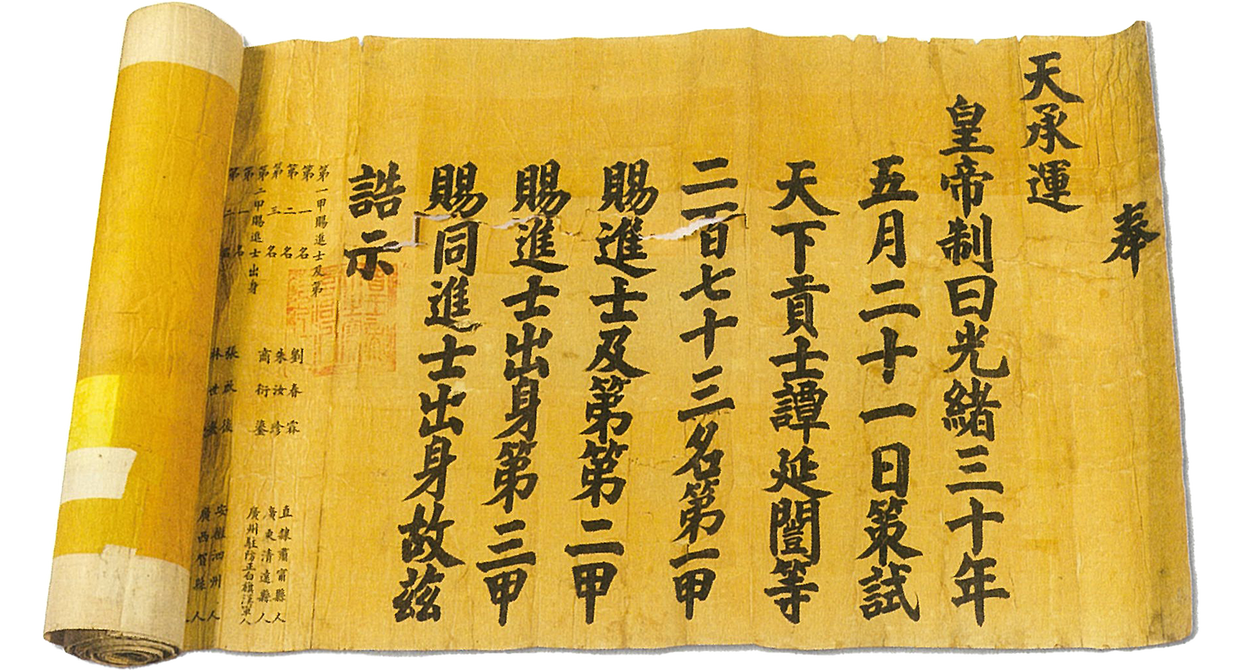 奉
天承運
皇帝制曰光緒三十年
五月二十一日策試
天下貢士譚延闓等
二百七十三名第一甲
賜進士及第第二甲
賜進士出身第三甲
賜同進士出身故茲
誥示
第一甲賜進士及第
第一名 劉春霖 直隸肅寧縣人
第二名 朱汝珍 廣東清遠縣人
第三名 商衍鎏 廣州駐防正白旗漢軍人
第二甲賜進士出身
第一名 張啟後 安徽泗州人
第二名 林世燾 廣西賀縣人